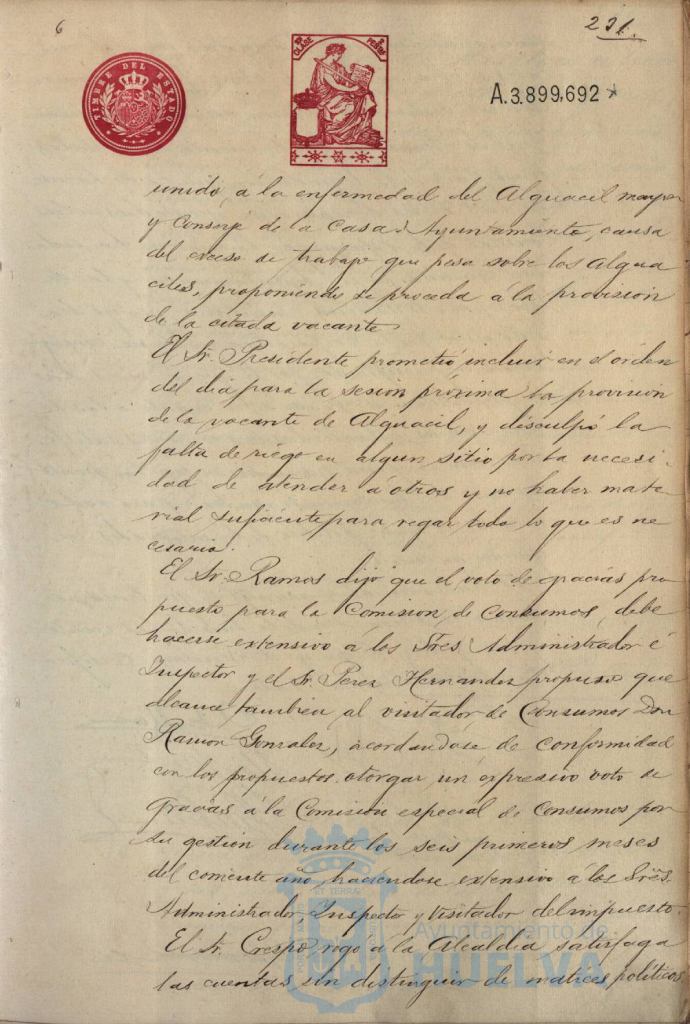 6
231.
TIMBRE DEL ESTADO
CLASE
PESETAS
A.3.899,692
unido, á la enfermedad del Alguacil mayor
y Conserje de la Casa Ayuntamiento, causa
del exceso de trabajo que pesa sobre los algua
ciles, proponiendo se proceda á la provision
de la citada vacante.
El Sr. Presidente prometió incluir en el orden
del dia para la sesión próxima la provision
de la vacante de Alguacil, y disculpó la
falta de riego en algun sitio por la necesi-
dad de atender á otros y no haber mate-
rial suficiente para regar todo lo que es ne
cesario.
El Sr. Ramos dijo que el voto de gracias pro
puesto para la Comision de Consumos, debe
hacerse extensivo á los Sres. Administrador é
Inspector y el Sr. Perez Hernandez propuso que
alcance tambien al visitador de Consumos Don
Ramon Gonzalez, acordandose de conformidad
con los propuestos otorgar un expresivo voto de
gracias á la Comision especial de Consumos por
su gestión durante los seis primeros meses
del corriente año, haciendose extensivo á los Sres.
Administrador, Inspector y Visitador del impuesto.
El Sr. Crespo, rogó á la Alcaldía satisfaga
las cuentas sin distinguir de matices políticos
Ayuntamiento de
HUELVA